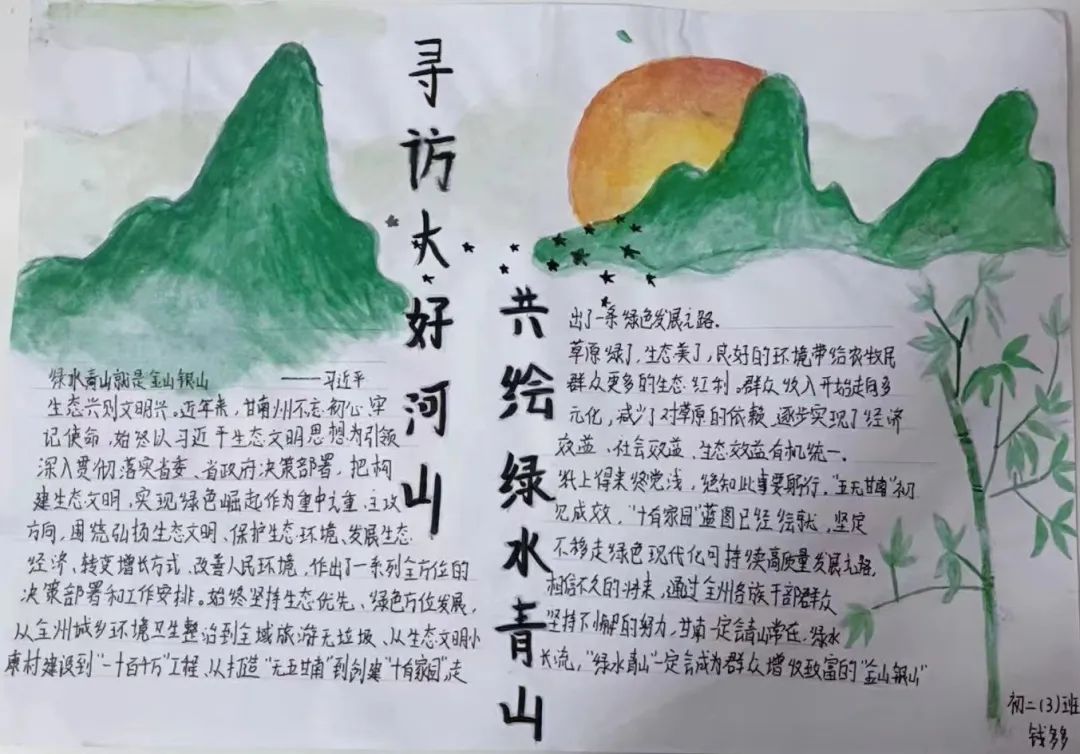 寻访大好河山
共绘绿水青山
绿水青山就是金山银山 ——习近平
生态兴则文明兴。近年来，甘南州不忘初心，牢
记使命，始终以习近平生态文明思想为引领
深入贯彻落实省委、省政府决策部署，把构
建生态文明，实现绿色崛起作为重中之重，主攻
方向，围绕弘扬生态文明、保护生态环境、发展生态
经济、转变增长方式、改善人民环境，作出了一系列全方位的
决策部署和工作安排。始终坚持生态优先、绿色方位发展，
从全州城乡环境卫生整治到全域旅游无垃圾、从生态文明小
康村建设到“一十百千万”工程、从打造“五无甘南”到创建“十有家园”，走
出了一条绿色发展之路。
草原绿了，生态美了，良好的环境带给农牧民
群众更多的生态红利。群众收入开始走向多
元化，减少了对草原的依赖，逐步实现了经济
效益、社会效益、生态效益有机统一。
纸上得来终觉浅，绝知此事要躬行，“五无甘南”初
见成效，“十有家园”蓝图已经绘就，坚定
不移走绿色现代化可持续高质量发展之路，
相信不久的将来，通过全州各族干部群众
坚持不懈的努力，甘南一定会青山常在，绿水
长流，“绿水青山”一定会成为群众增收致富的“金山银山”
初二（3）班
钱多多